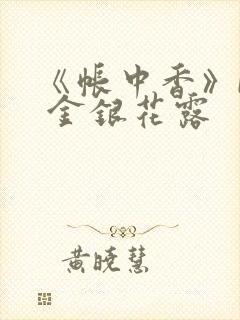 《帐中香》
金银花露
黄晓慧